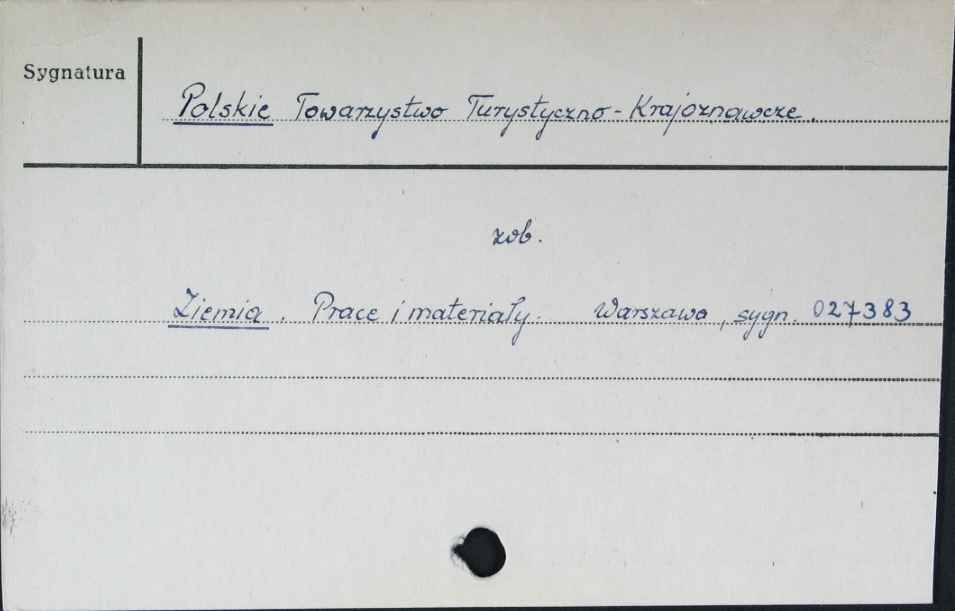 Sygnatura
Polskie Towarzystwo Turystyczno-Krajoznawcze.
zob.
Ziemia. Prace i materiały. Warszawa, sygn. 027383